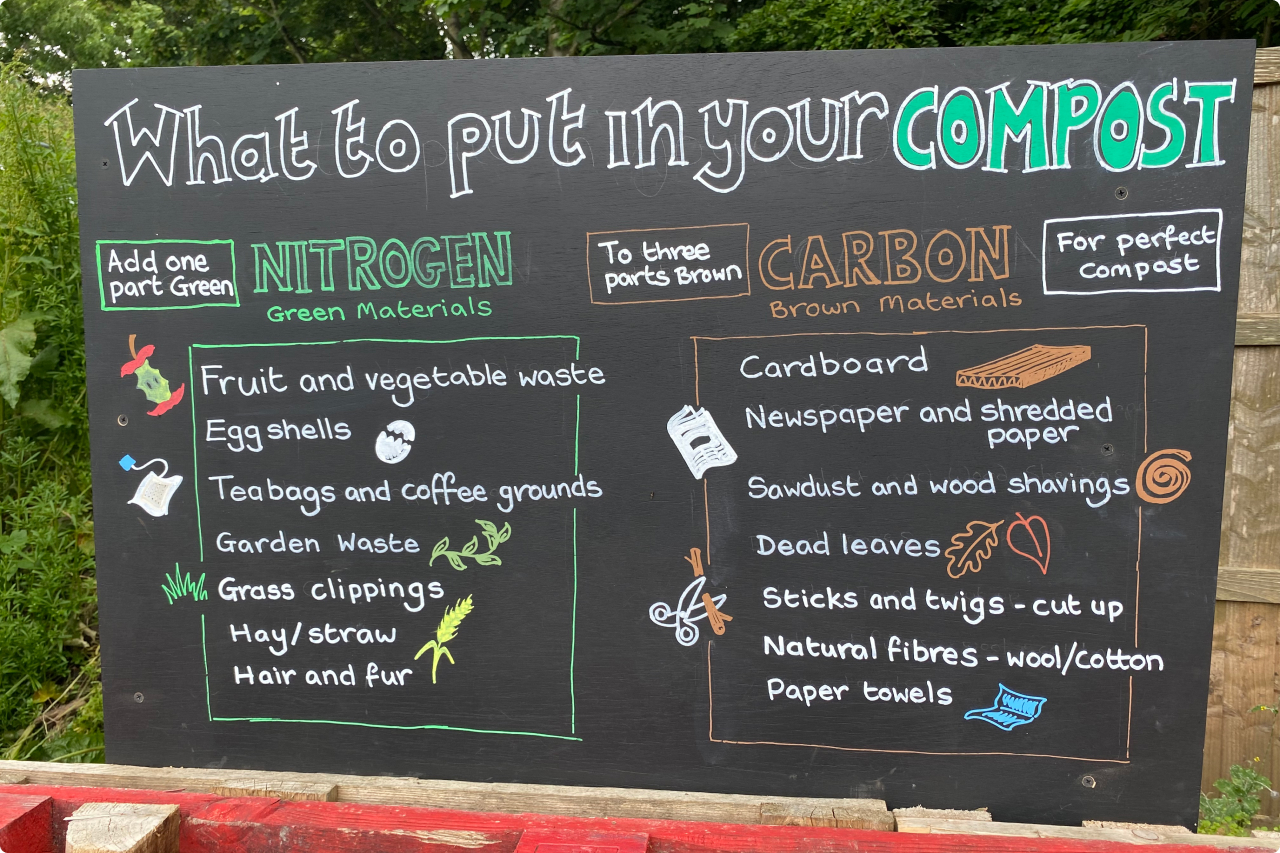 What to put in your COMPOST
Add one
part Green
NITROGEN
Green Materials
To three
parts Brown
CARBON
Brown Materials
For perfect
Compost
Fruit and vegetable waste
Egg shells
Teabags and coffee grounds
Garden Waste
Grass clippings
Hay/straw
Hair and fur
Cardboard
Newspaper and shredded
paper
Sawdust and wood shavings
Dead leaves
Sticks and twigs - cut up
Natural fibres - wool/cotton
Paper towels